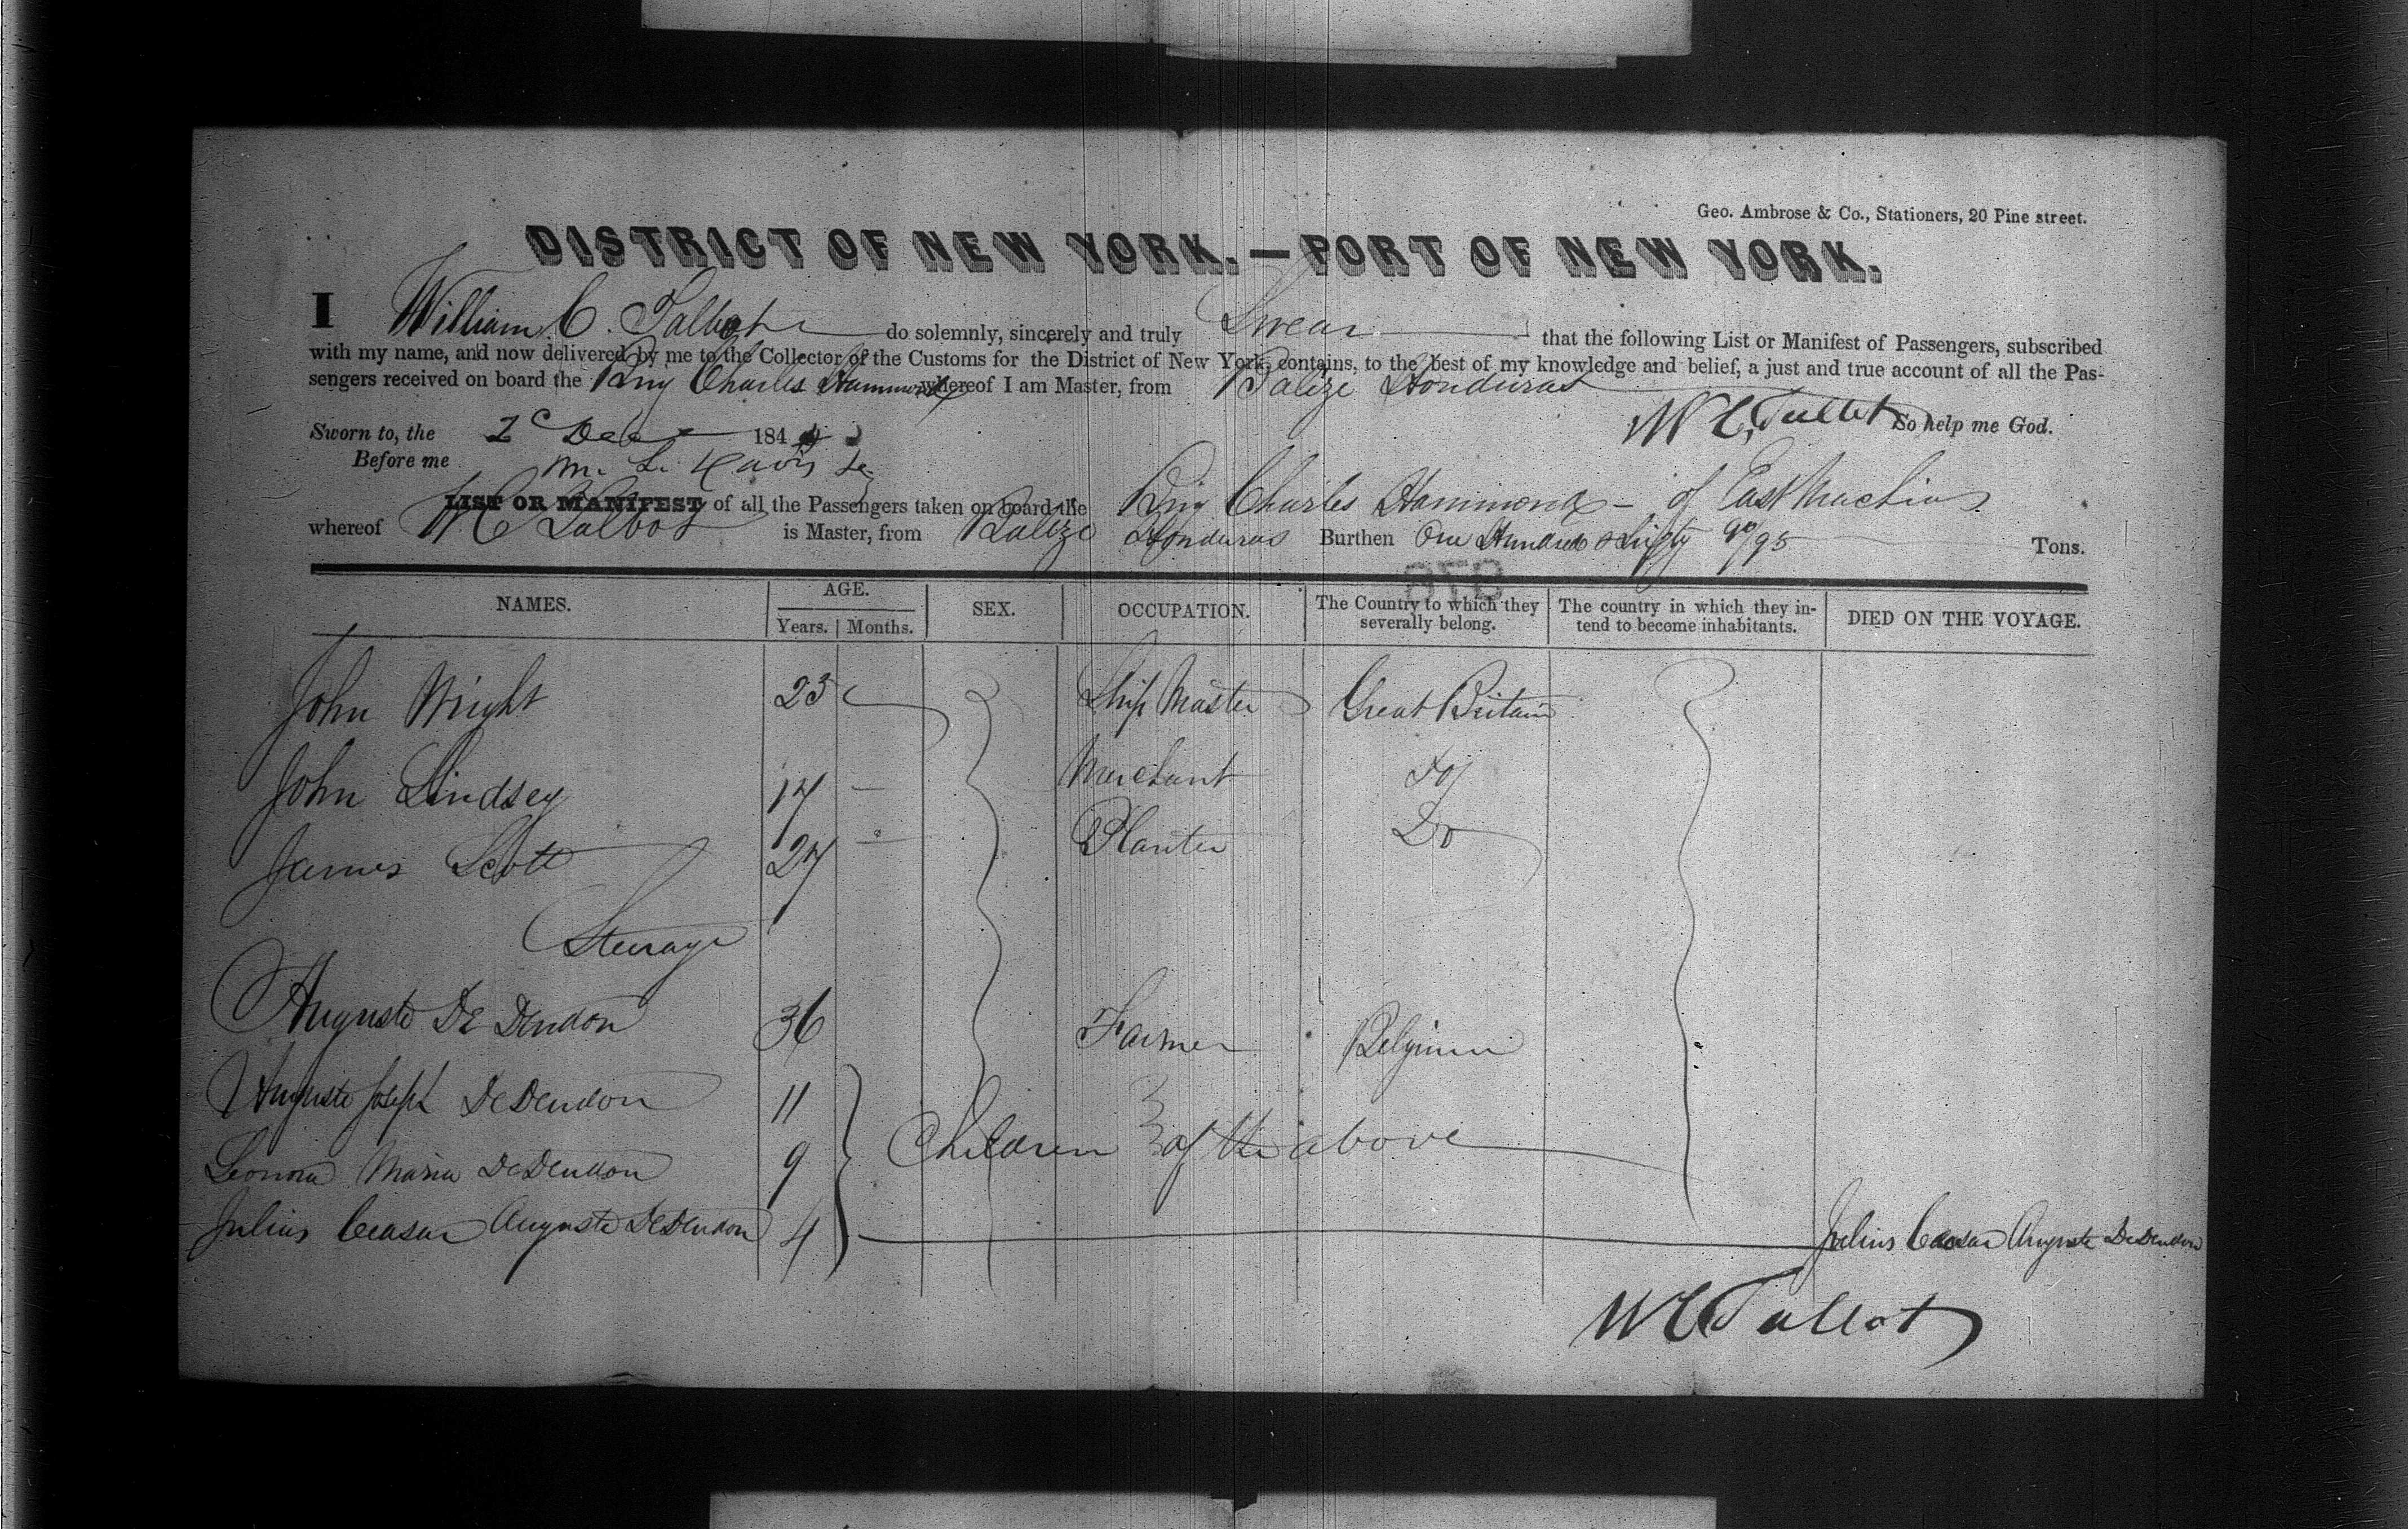 Geo. Ambrose & Co., Stationers, 20 Pine street.
DISTRICT OF NEW YORK.—PORT OF NEW YORK.
I William C. Talbot do solemnly, sincerely and truly Swear that the following List or Manifest of Passengers, subscribed
with my name, and now delivered by me to the Collector of the Customs for the District of New York, contains, to the best of my knowledge and belief, a just and true account of all the Pas-
sengers received on board the Brig Charles Hammond whereof I am Master, from Balize Honduras
W C Talbot So help me God.
Sworn to, the 2 Dec 184
Before me
LIST OR MANIFEST of all the Passengers taken on board the Brig Charles Hammond - of East Machias
whereof W C Talbot is Master, from Balize Honduras Burthen One Hundred & 90/95 Tons.
NAMES. AGE. SEX. OCCUPATION. The Country to which they severally belong. The country in which they in-tend to become inhabitants. DIED ON THE VOYAGE.
Years. Months.
John Wright 23 Ship Master Great Britain
John Lindsey 17 Merchant Do
James Scott 27 Planter Do
Steerage
Auguste De Dendon 36 Farmer Belgium
Auguste Joseph DeDendon 11
Leonora Maria DeDendon 9 Children of the above
Julius Ceasar Auguste DeDendon 4 Julius Ceasar Auguste DeDendon
W C Talbot